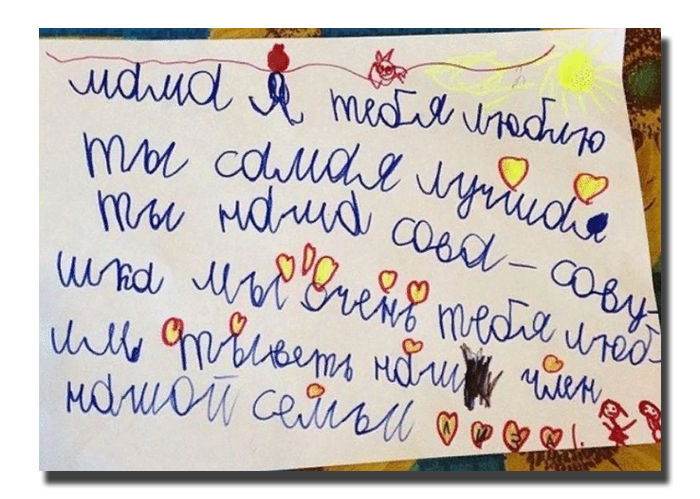 мама я тебя люблю
ты самая лучшая
ты наша сова-сову-
шка мы очень тебя люб
им тыветь наш член
нашой семьи